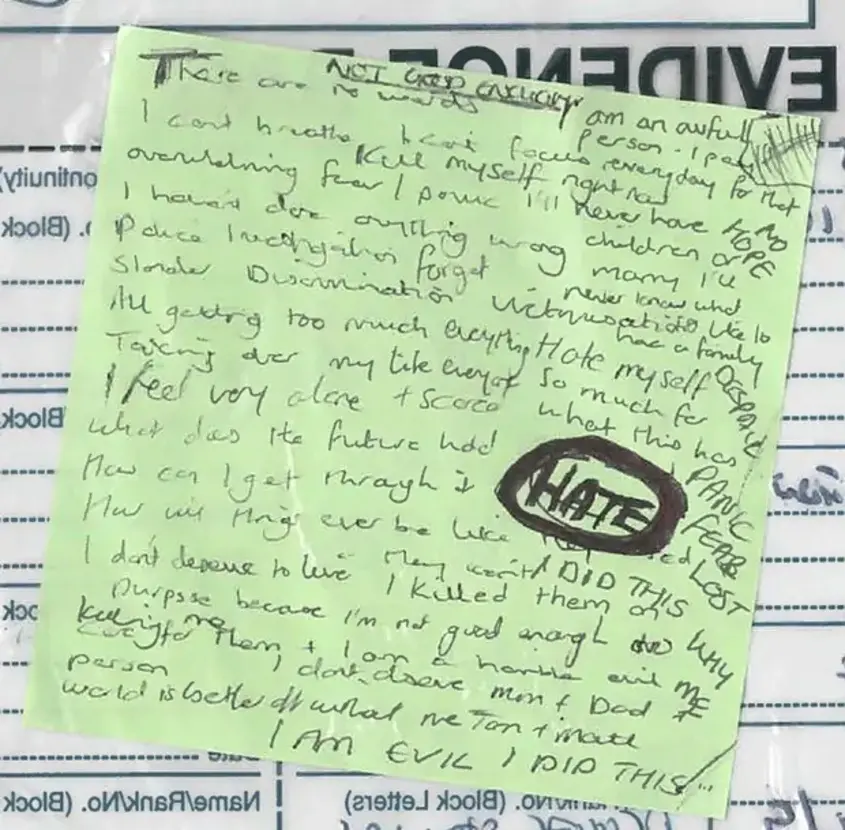 EVIDENCE
ontinuity)
. (Block
Block
ock
Name/Rank/No. (Block
Rank/No. (Block Letters)
NOT GOOD ENOUGH
There are no words I am an awful person - I pay
I can't breathe I can't focus everyday for that
overwhelming fear / panic I'll never have
Kill myself right now
I haven't done anything wrong children or
Police investigation forget marry I'll
never know what
Slander Discrimination Victimisation it's like to
have a family
All getting too much everything Hate myself
Taking over my life everyday so much for
I feel very alone + scared what this has
what does the future hold
How can I get through it
How will things ever be like
HATE
I don't deserve to live They won't I DID THIS
I killed them on
purpose because I'm not good enough to
killing me
care for them + I am a horrible evil
person I don't deserve mum + Dad
world is better off without me
I AM EVIL I DID THIS
NO
HOPE
DESPAIR
PANIC
FEAR
LOST
WHY
ME